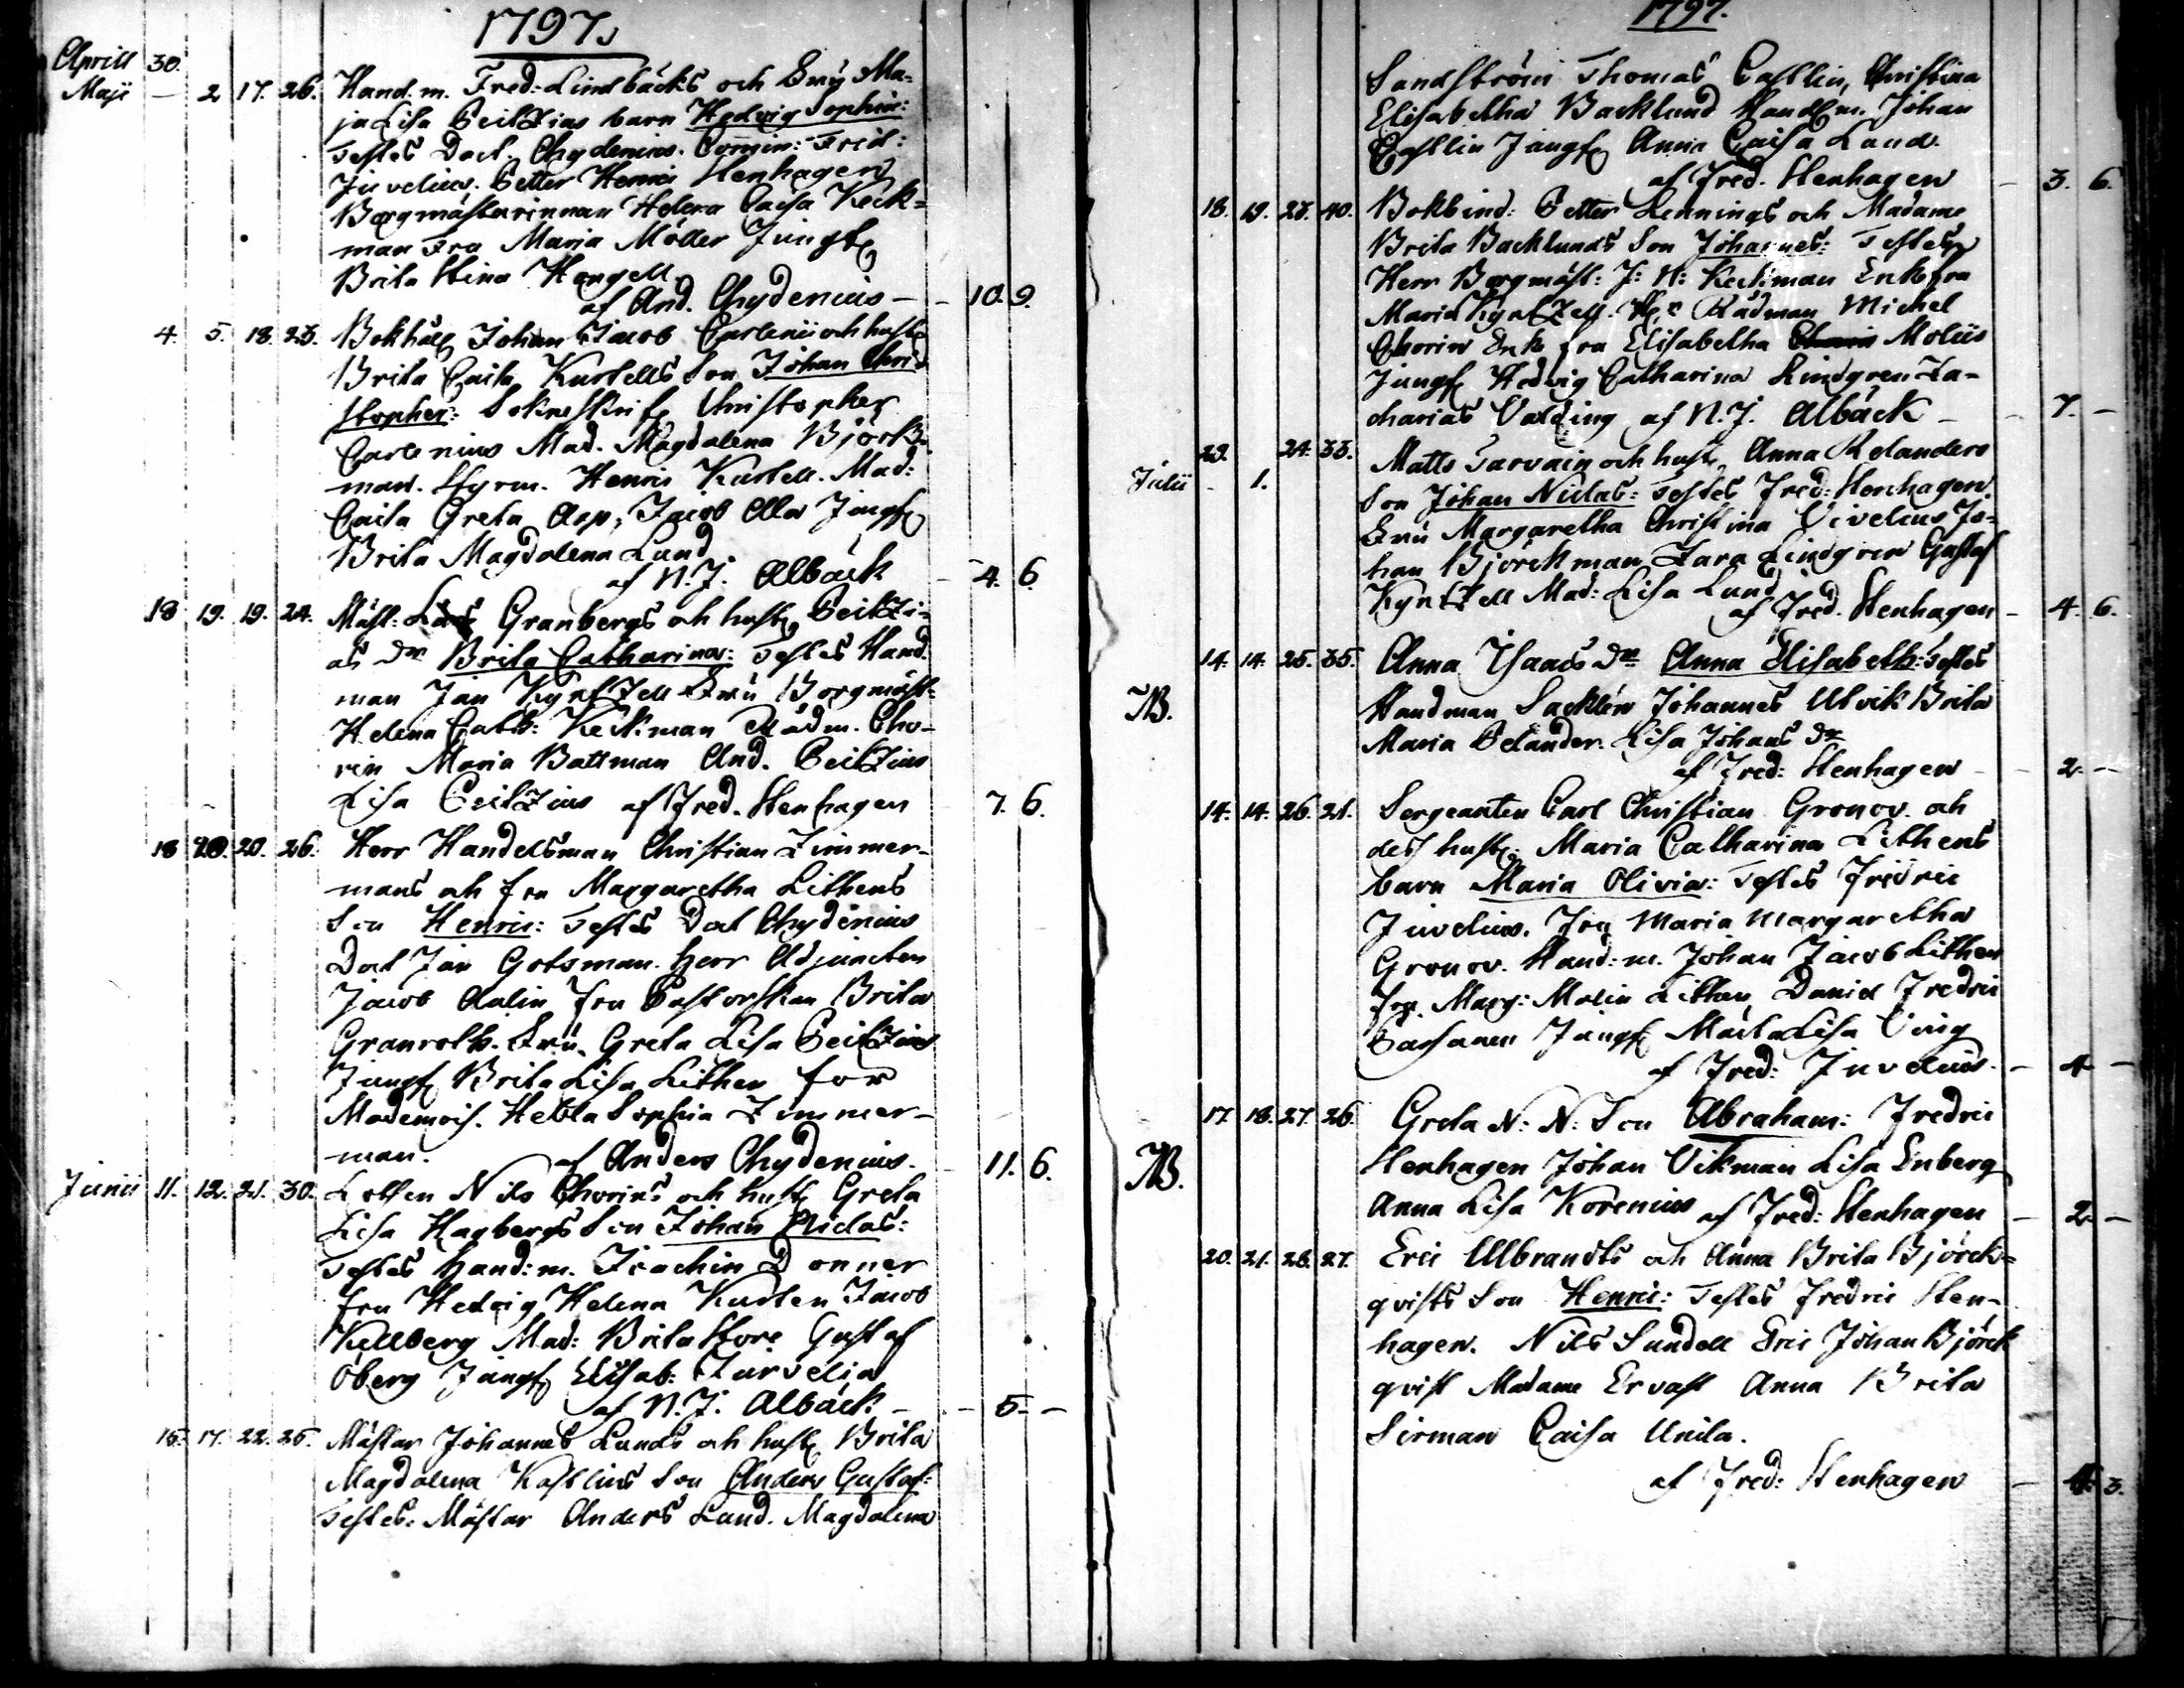 1797.
Aprill 30.
Maji — 2 17. 26. Hand. m. Fred: Lindbäcks och Fru Ma-
ja Lisa Peitzius barn Hedvig Sophia:
Testes Doct. Chydenius. Commin: Frid:
Juvelius. Petter Henric Stenhagen
Borgmästarinnan Helena Caisa Keck-
man Fru Maria Möller Jungf
Brita Stina Hongell
af And. Chydenius — 10. 9.
4. 5. 18. 23. Bokhåll Johan Jacob Carlenii och hust
Brita Caisa Kurtells Son Johan Chri
stopher: Sokneskrif Christopher
Carlenius Mad. Magdalena Björk-
man. Styrm. Henric Kurtell. Mad:
Caisa Greta Asp, Jacob Alla Jungf
Brita Magdalena Lund
af N. J. Albäck — 4. 6.
18 19. 19. 24. Mäst: Lars Granbergs och hust Peitzi-
as dr Brita Catharina: Testes Hand
man Jan Kyntzell Fru Borgmäst-
Helena Cath: Keckman Rådm. Cho-
rin Maria Battman And. Peitzius
Lisa Peitzius af Fred. Stenhagen 7. 6.
18 20. 20. 26. Herr Handelsman Christian Zimmer-
mans och fru Margaretha Lithens
Son Henric: Testes Doct Chydenius
Doct Jan Gotsman. Herr Adjuncten
Jacob Aalin fru Pastorskan Brita
Granroth. Fru Greta Lisa Peitzius
Jungf Brita Lisa Lithen for
Mademois. Hebla Sophia Zimmer-
man. af Anders Chydenius. 11. 6.
Junii 11. 12. 21. 30. Lotsen Nils Chorins och hust Greta
Lisa Hagbergs Son Johan Niclas:
Testes Hand: m. Joachin Donner
fru Hedvig Helena Kurten Jacob
Kellberg Mad: Brita Store Gustaf
Öberg Jungf Elisab: Jurvelin
af N. J. Albäck — 5. —
16. 17. 22. 25. Mästar Johannes Lunds och hust Brita
Magdalena Kastlins Son Anders Gustaf:
Testes: Mästar Anders Lund. Magdalena
1797.
Sandström Thomas Castlin, Christina
Elisabetha Backlund Handl m. Johan
Castlin Jungf Anna Caisa Lund.
af Fred. Stenhagen — 3. 6.
18. 19. 23. 40. Bokbind: Petter Lennings och Madame
Brita Backlunds Son Johannes: Testes
Herr Borgmäst: J: H: Keckman Enk fru
Maria Kyntzell. Hr Rådman Michel
Chorin Enk fru Elisabetha Moliis
Jungf Hedvig Catharina Lindgren Za-
charias Valding af N. J. Albäck — 7. —
29. 24. 33. Matts Tarvain och hust Anna Relanders
Julii — 1. Son Johan Niclas: Testes Fred: Stenhagen
Fru Margaretha Christina Vivelius Jo-
han Björckman Zara Lindgren Gustaf
Kyntzell Mad: Lisa Lund
af Fred. Stenhagen — 4. 6.
14. 14. 25. 35. Anna Isaacs dr Anna Elisabeth: Testes
NB. Handman Sacklén Johannes Ulvik Brita
Maria Pelander. Lisa Johans dr
af Fred: Stenhagen — 2. —
14. 14. 26. 21. Sergeanten Carl Christian Gronov. och
dess hust: Maria Catharina Lithens
barn Maria Olivia: Testes Fridric
Juvelius. Fru Maria Margaretha
Gronov. Hand: m. Johan Jacob Lithen
fru. Marg: Molin Lithen Daniel Fredric
Jungf Maita Lisa Ving
af Fred: Juvelius. — 4 —
17. 18. 27. 26. Greta N: N: Son Abraham: Fredric
NB. Stenhagen Johan Vikman Lisa Enberg
Anna Lisa Korenius af Fred: Stenhagen — 2. —
20. 21. 28. 27. Eric Ulbrandts och Anna Brita Björck-
qvists Son Henric: Testes Fredric Sten-
hagen. Nils Sundell Eric Johan Björck
qvist Madame Ervast Anna Brita
Sirman Caisa Unila.
af Fred: Stenhagen — 4. 3.